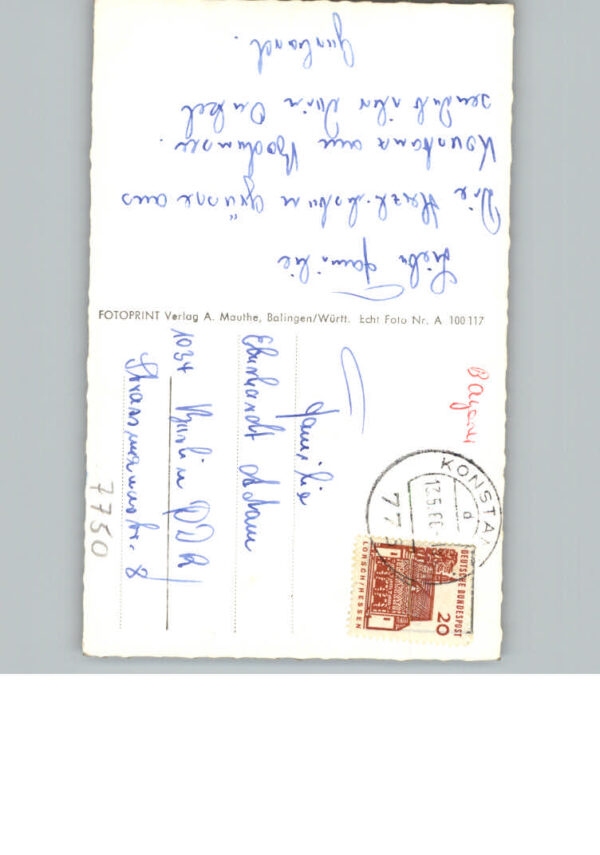 Liebe Familie
Die herzlichsten Grüsse aus
Konstanz am Bodensee.
sendet Euer Onkel
FOTOPRINT Verlag A. Mauthe, Balingen/Württ. Echt Foto Nr. A 100 117
Bayern
KONSTAN
d
13.5.66
77
DEUTSCHE BUNDESPOST
20
LORSCH/HESSEN
Familie
Eberhardt Adam
1034 Berlin DDR
Strassmannstr. 8
7750